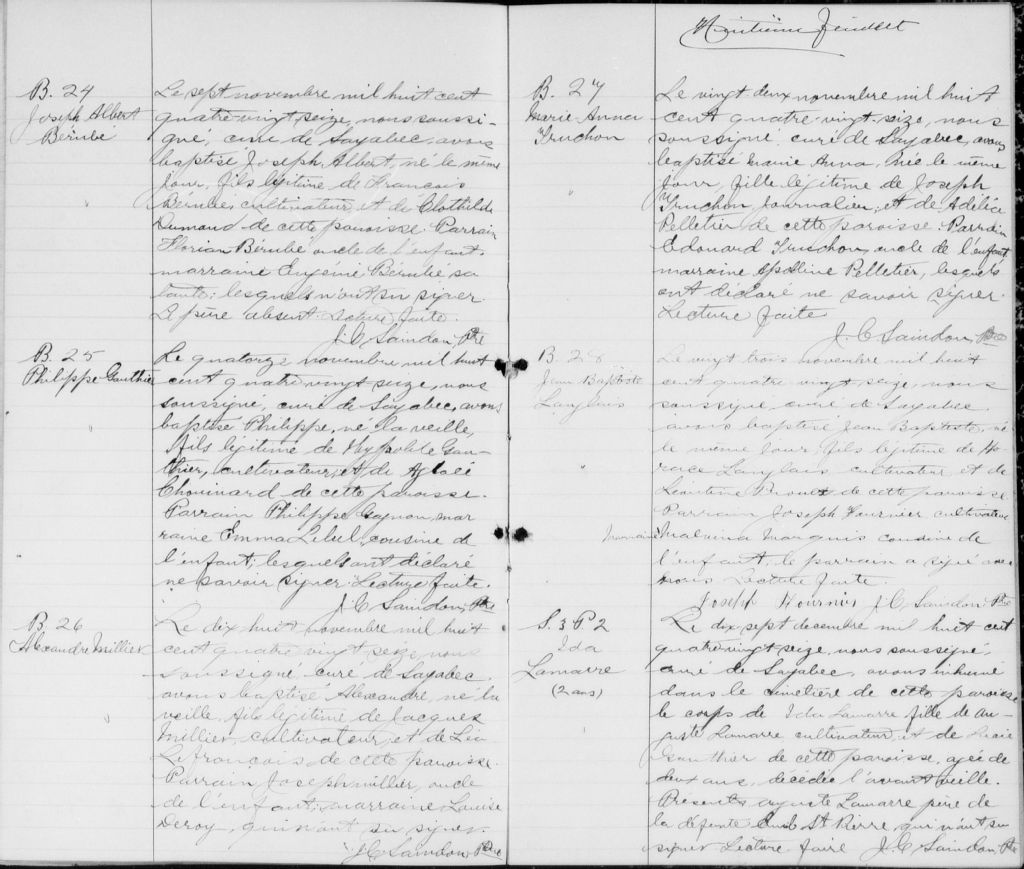 B. 24
Joseph Albert
Bérubé
Le sept novembre mil huit cent
quatre vingt seize, nous soussi-
gné, curé de Sayabec, avons
baptisé Joseph Albert, né le même
jour, fils légitime de Francois
Bérubé, cultivateur, et de Clothilde
Dumond de cette paroisse. Parrain
Florian Bérubé oncle de l'enfant.
marraine Eugenie Bérubé sa
tante; lesquels n'ont su signer.
Le père absent. Lecture faite.
J. C Saindon, Ptre
B. 25
Philippe Gauthier
Le quatorze novembre mil huit
cent quatre vingt seize, nous
soussigné, curé de Sayabec, avons
baptisé Philippe, né la veille,
fils légitime de Hypolite Gau-
thier, cultivateur, et de Aglaé
Chouinard de cette paroisse.
Parrain Philippe Gagnon, mar
raine Emma Lebel, cousine de
l'enfant; lesquels ont déclaré
ne savoir signer. Lecture faite.
J. C Saindon, Ptre
B. 26
Alexandre Millier
Le dix huit novembre mil huit
cent quatre vingt seize, nous
soussigné, curé de Sayabec
avons baptisé Alexandre, né la
veille, fils légitime de Jacques
Millier, cultivateur, et de Léa
Lefrançois de cette paroisse.
Parrain Joseph Millier, oncle
de l'enfant; marraine Louise
Deroy, qui n'ont su signer.
J. C Saindon, Ptre
Huitième feuillet
B. 27
Marie Anna
Truchon
Le vingt deux novembre mil huit
cent quatre vingt-seize, nous
soussigné, curé de Sayabec, avons
baptisé Marie Anna, née le même
jour, fille légitime de Joseph
Truchon Journalier, et de Adélia
Pelletier de cette paroisse. Parrain
Edouard Truchon, oncle de l'enfant
marraine Apolline Pelletier, lesquels
ont déclaré ne savoir signer.
Lecture faite
J. C Saindon, Ptre
B. 28
Jean Baptiste
Langlais
Le vingt trois novembre mil huit
cent quatre vingt seize, nous
soussigné, curé de Sayabec,
avons baptisé Jean Baptiste, né
le même jour, fils légitime de Ho-
race Langlais cultivateur et de
Léontine Proulx de cette paroisse.
Parrain Joseph Fournier cultivateur
Marraine Malvina Marquis cousine de
l'enfant, le parrain a signé avec
nous Lecture faite.
Joseph Fournier J. C Saindon Ptre
S. 3 P 2
Ida
Lamarre
(2 ans)
Le dix sept decembre mil huit cent
quatre vingt seize, nous soussigné,
curé de Sayabec, avons inhumé
dans le cimetière de cette paroisse
le corps de Ida Lamarre fille de Au-
guste Lamarre cultivateur, et de
Gauthier de cette paroisse, agée de
deux ans, décédée l'avant veille.
Présents Auguste Lamarre père de
la défunte St Pierre, qui n'ont su
signer Lecture faite J. C Saindon, Ptre